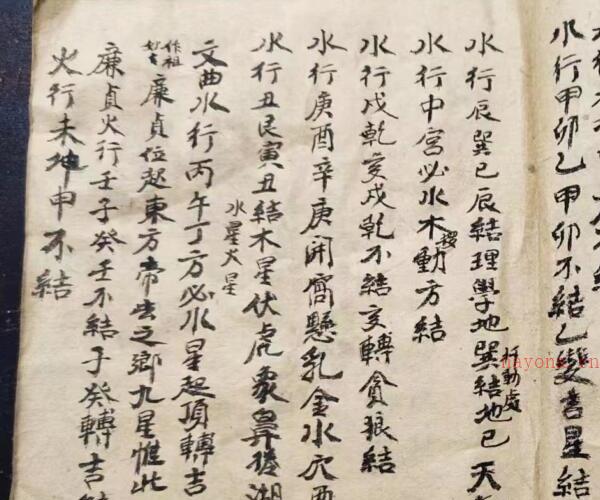 水行甲卯乙甲卯不結乙變吉星結
水行辰巽巳辰結理學地巽結地巳天
行動處
水行中宮必水木變動方結
水行戌乾亥戌乾不結亥轉貪狼結
水行庚酉辛庚開窩懸乳金水穴酉
水行丑艮寅丑結木星伏虎象鼻後湖
水星火星
文曲水行丙午丁方必水星起頂轉吉
作祖妙吉
廉貞位起東方帝出之鄉九星惟此
廉貞火行壬子癸壬不結子癸轉吉結
火行未坤申不結
nayong.cn